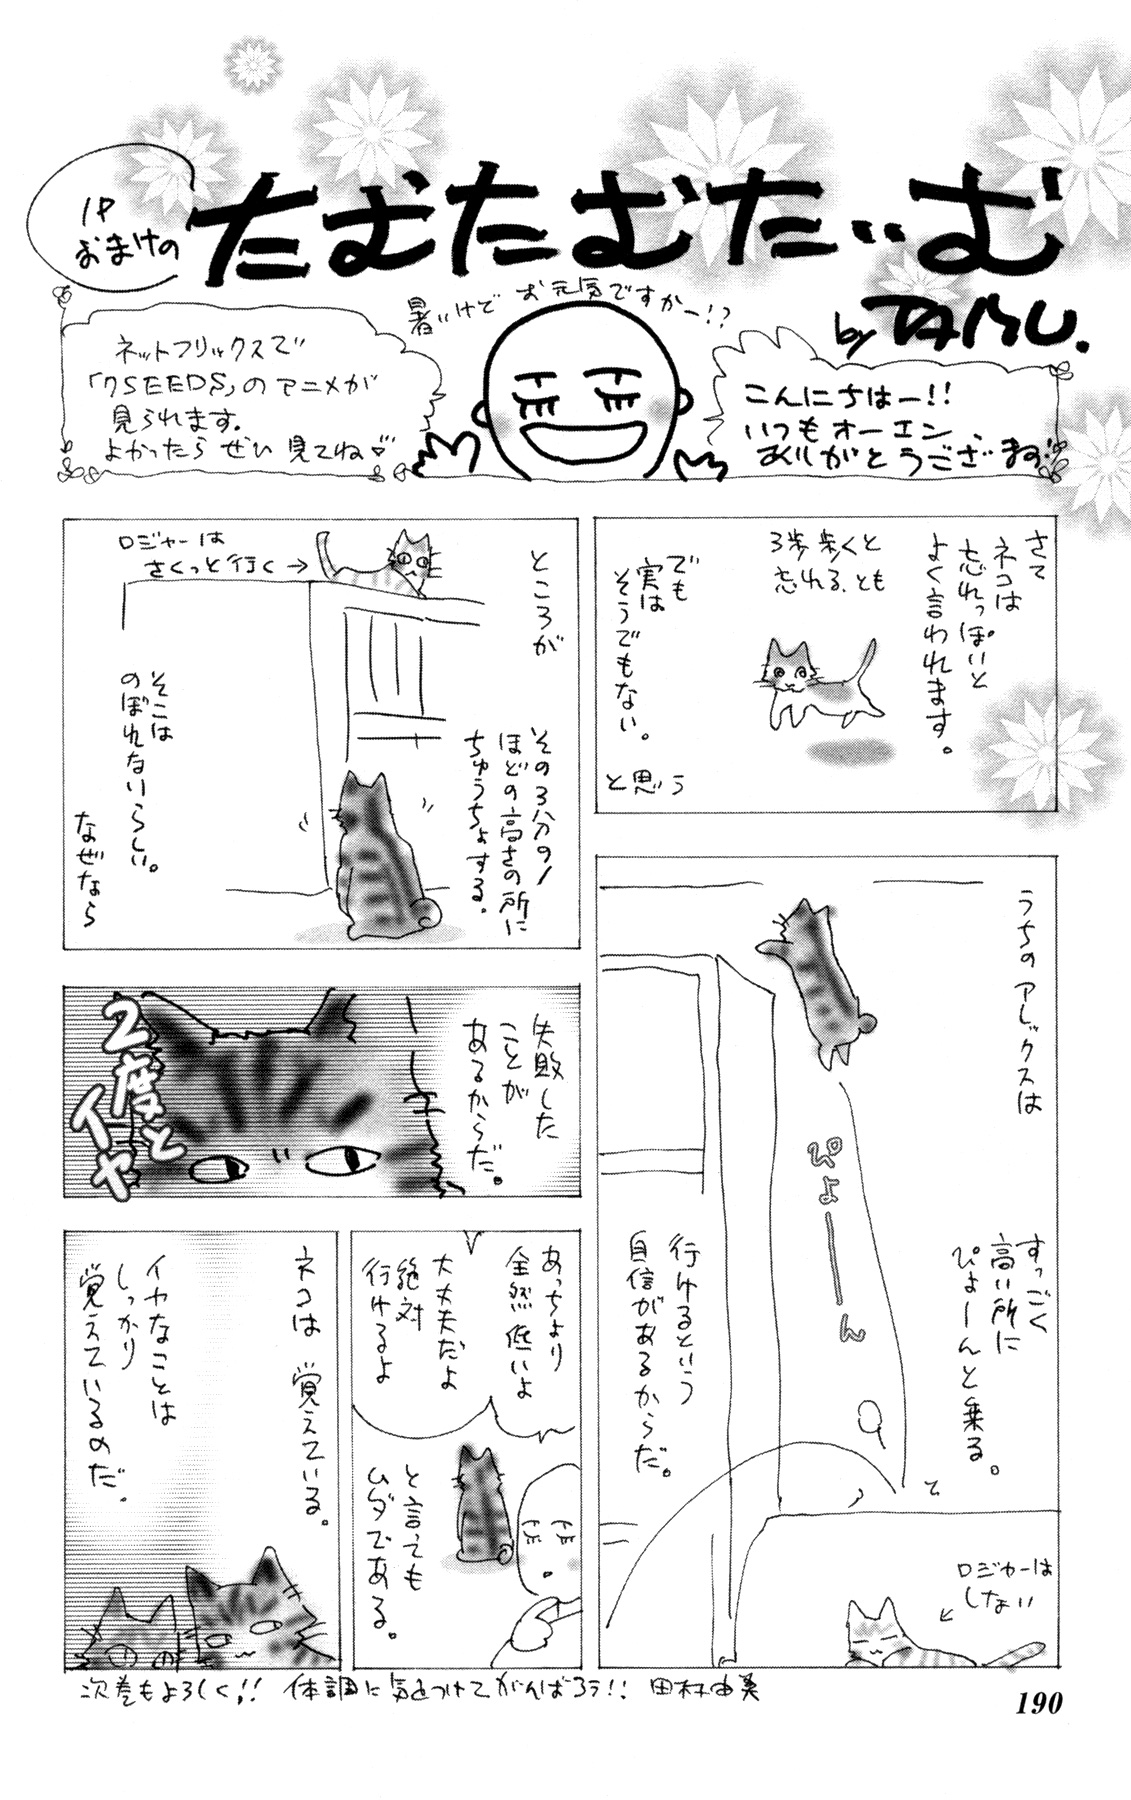 1P
おまけの
たむたむたいむ
by TAMU.
暑いけど お元気ですかー!?
こんにちはー!!
いつもオーエン、
ありがとうございます!!
ネットフリックスで
「7SEEDS」のアニメが
見られます。
よかったら ぜひ 見てね♡
さて
ネコは
忘れっぽいと
よく言われます。
3歩歩くと
忘れる、とも
でも
実は
そうでもない。
と思う
うちのアレックスは
すっごく
高い所に
ぴょーんと乗る。
ぴょーん
行けるという
自信があるからだ。
ロジャーは
しない
ところが
その3分の1
ほどの高さの所に
ちゅうちょする。
ロジャーは
さくっと行く→
そこは
のぼれないらしい。
なぜなら
失敗した
ことが
あるからだ。
2度と
イヤ
あっちより
全然低いよ
大丈夫だよ
絶対
行けるよ
と言っても
ムダである。
ネコは 覚えている。
イヤなことは
しっかり
覚えているのだ。
次巻もよろしく!! 体調に気をつけてがんばろう!! 田村由美
190